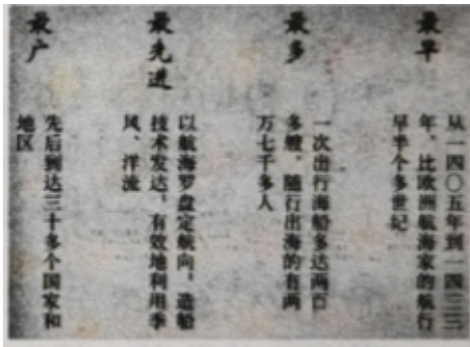 最早
从一四〇五年到一四三三
年，比欧洲航海家的航行
早半个多世纪
最多
一次出行海船多达两百
多艘，随行出海的有两
万七千多人
最先进
以航海罗盘定航向，造船
技术发达，有效地利用季
风、洋流
最广
先后到达三十多个国家和
地区